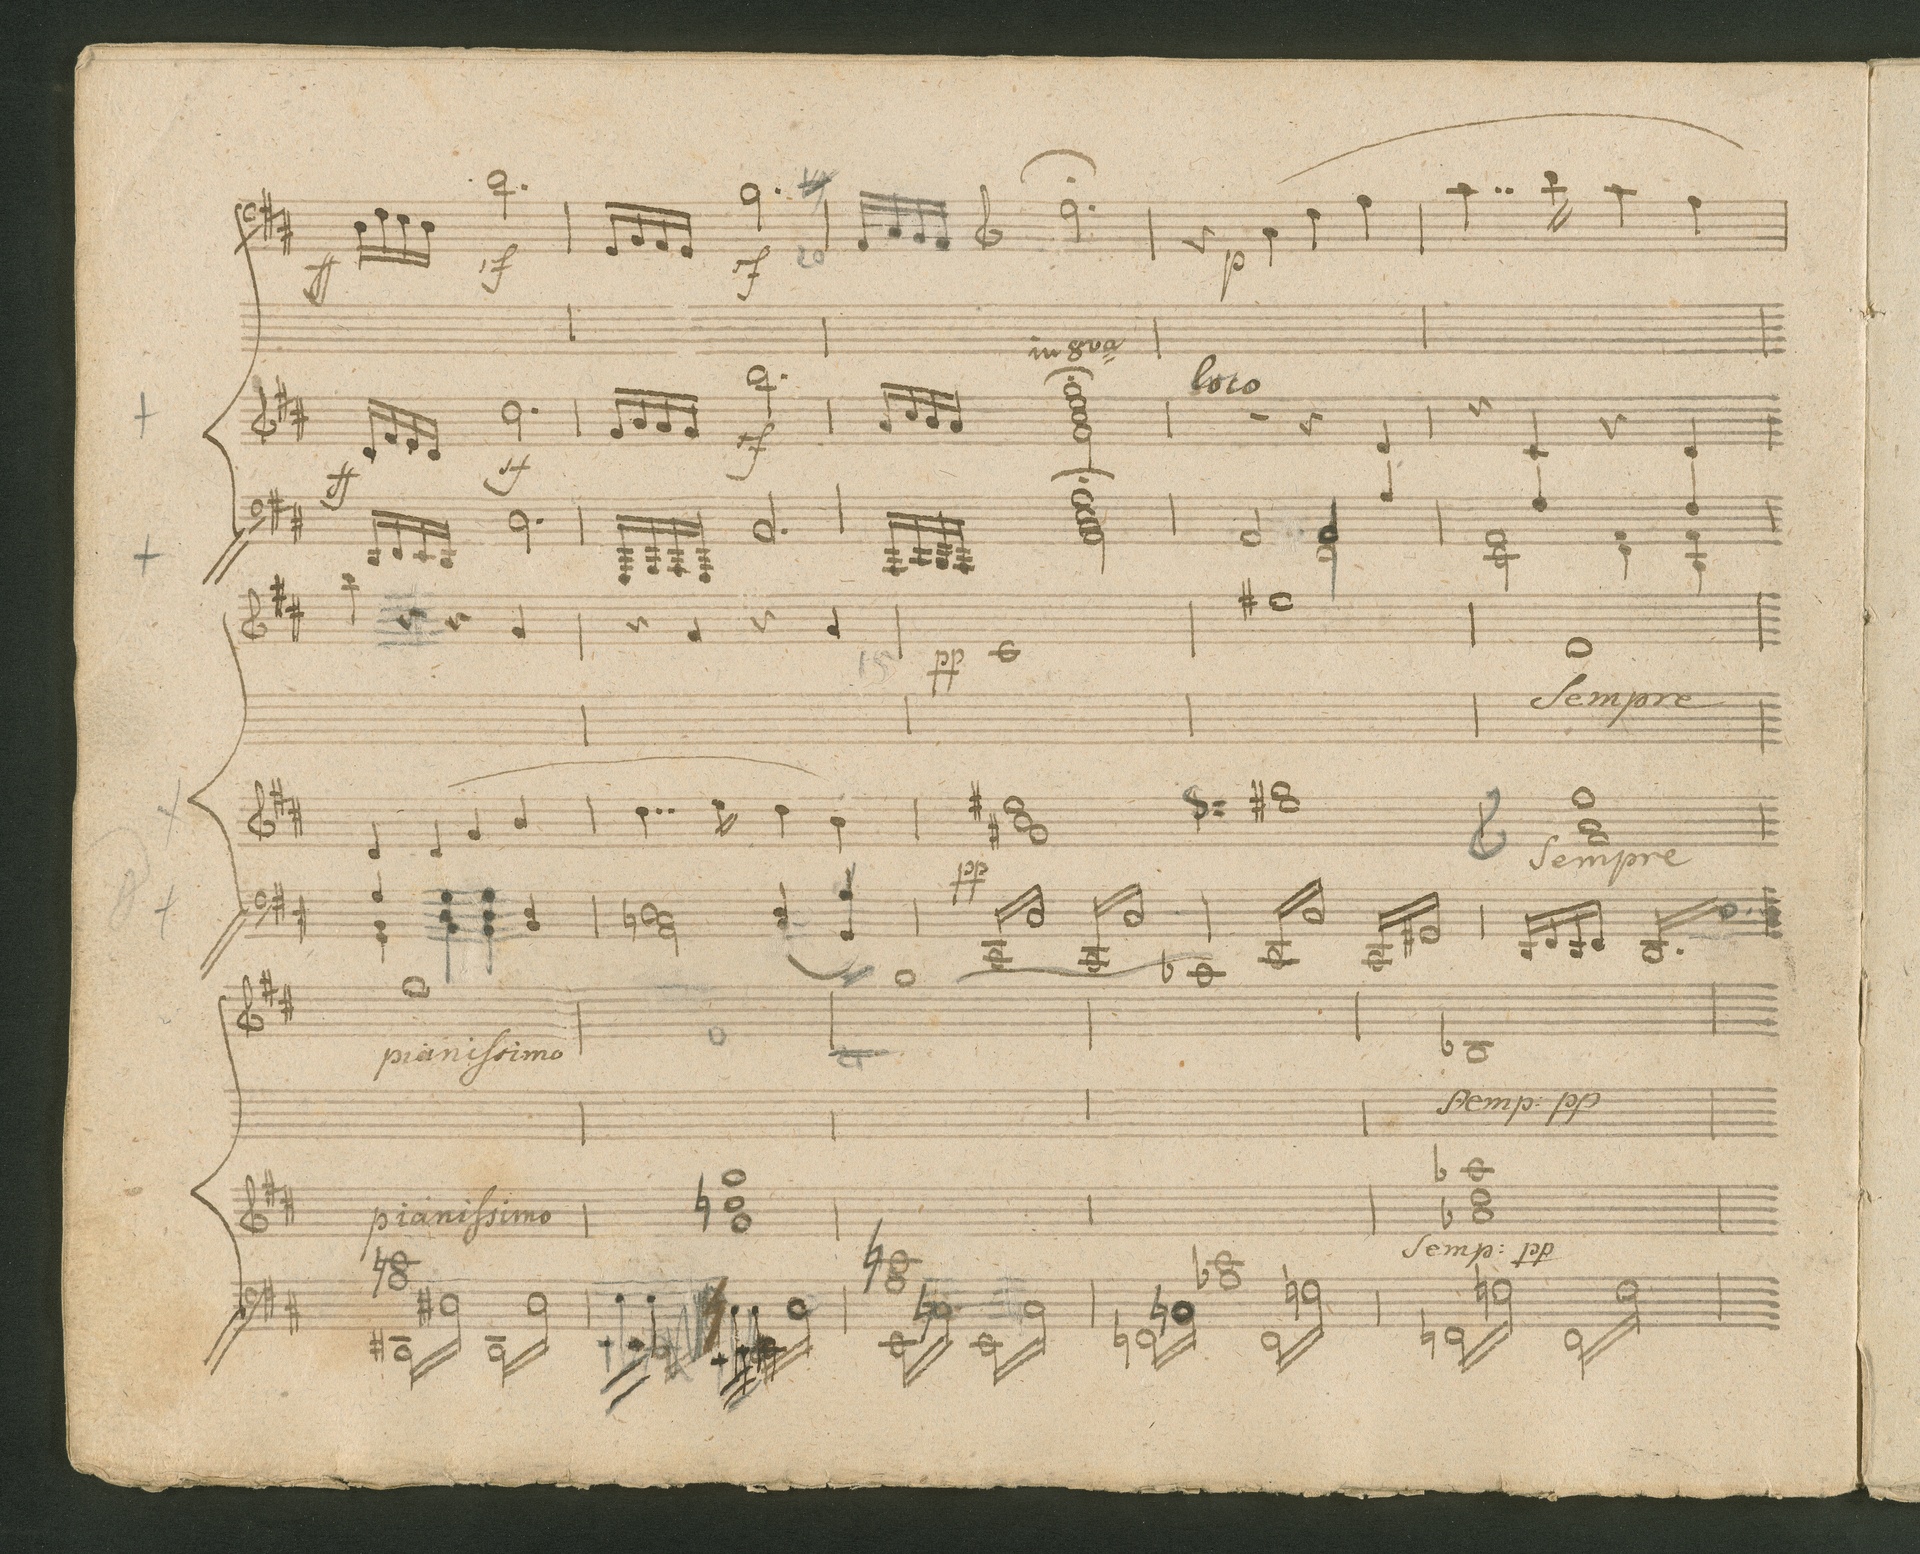 ff sf sf p
in 8va
loco
ff sf sf
15 pp
Sempre
Sempre
pp
pianissimo
Semp: pp
pianissimo
Semp: pp